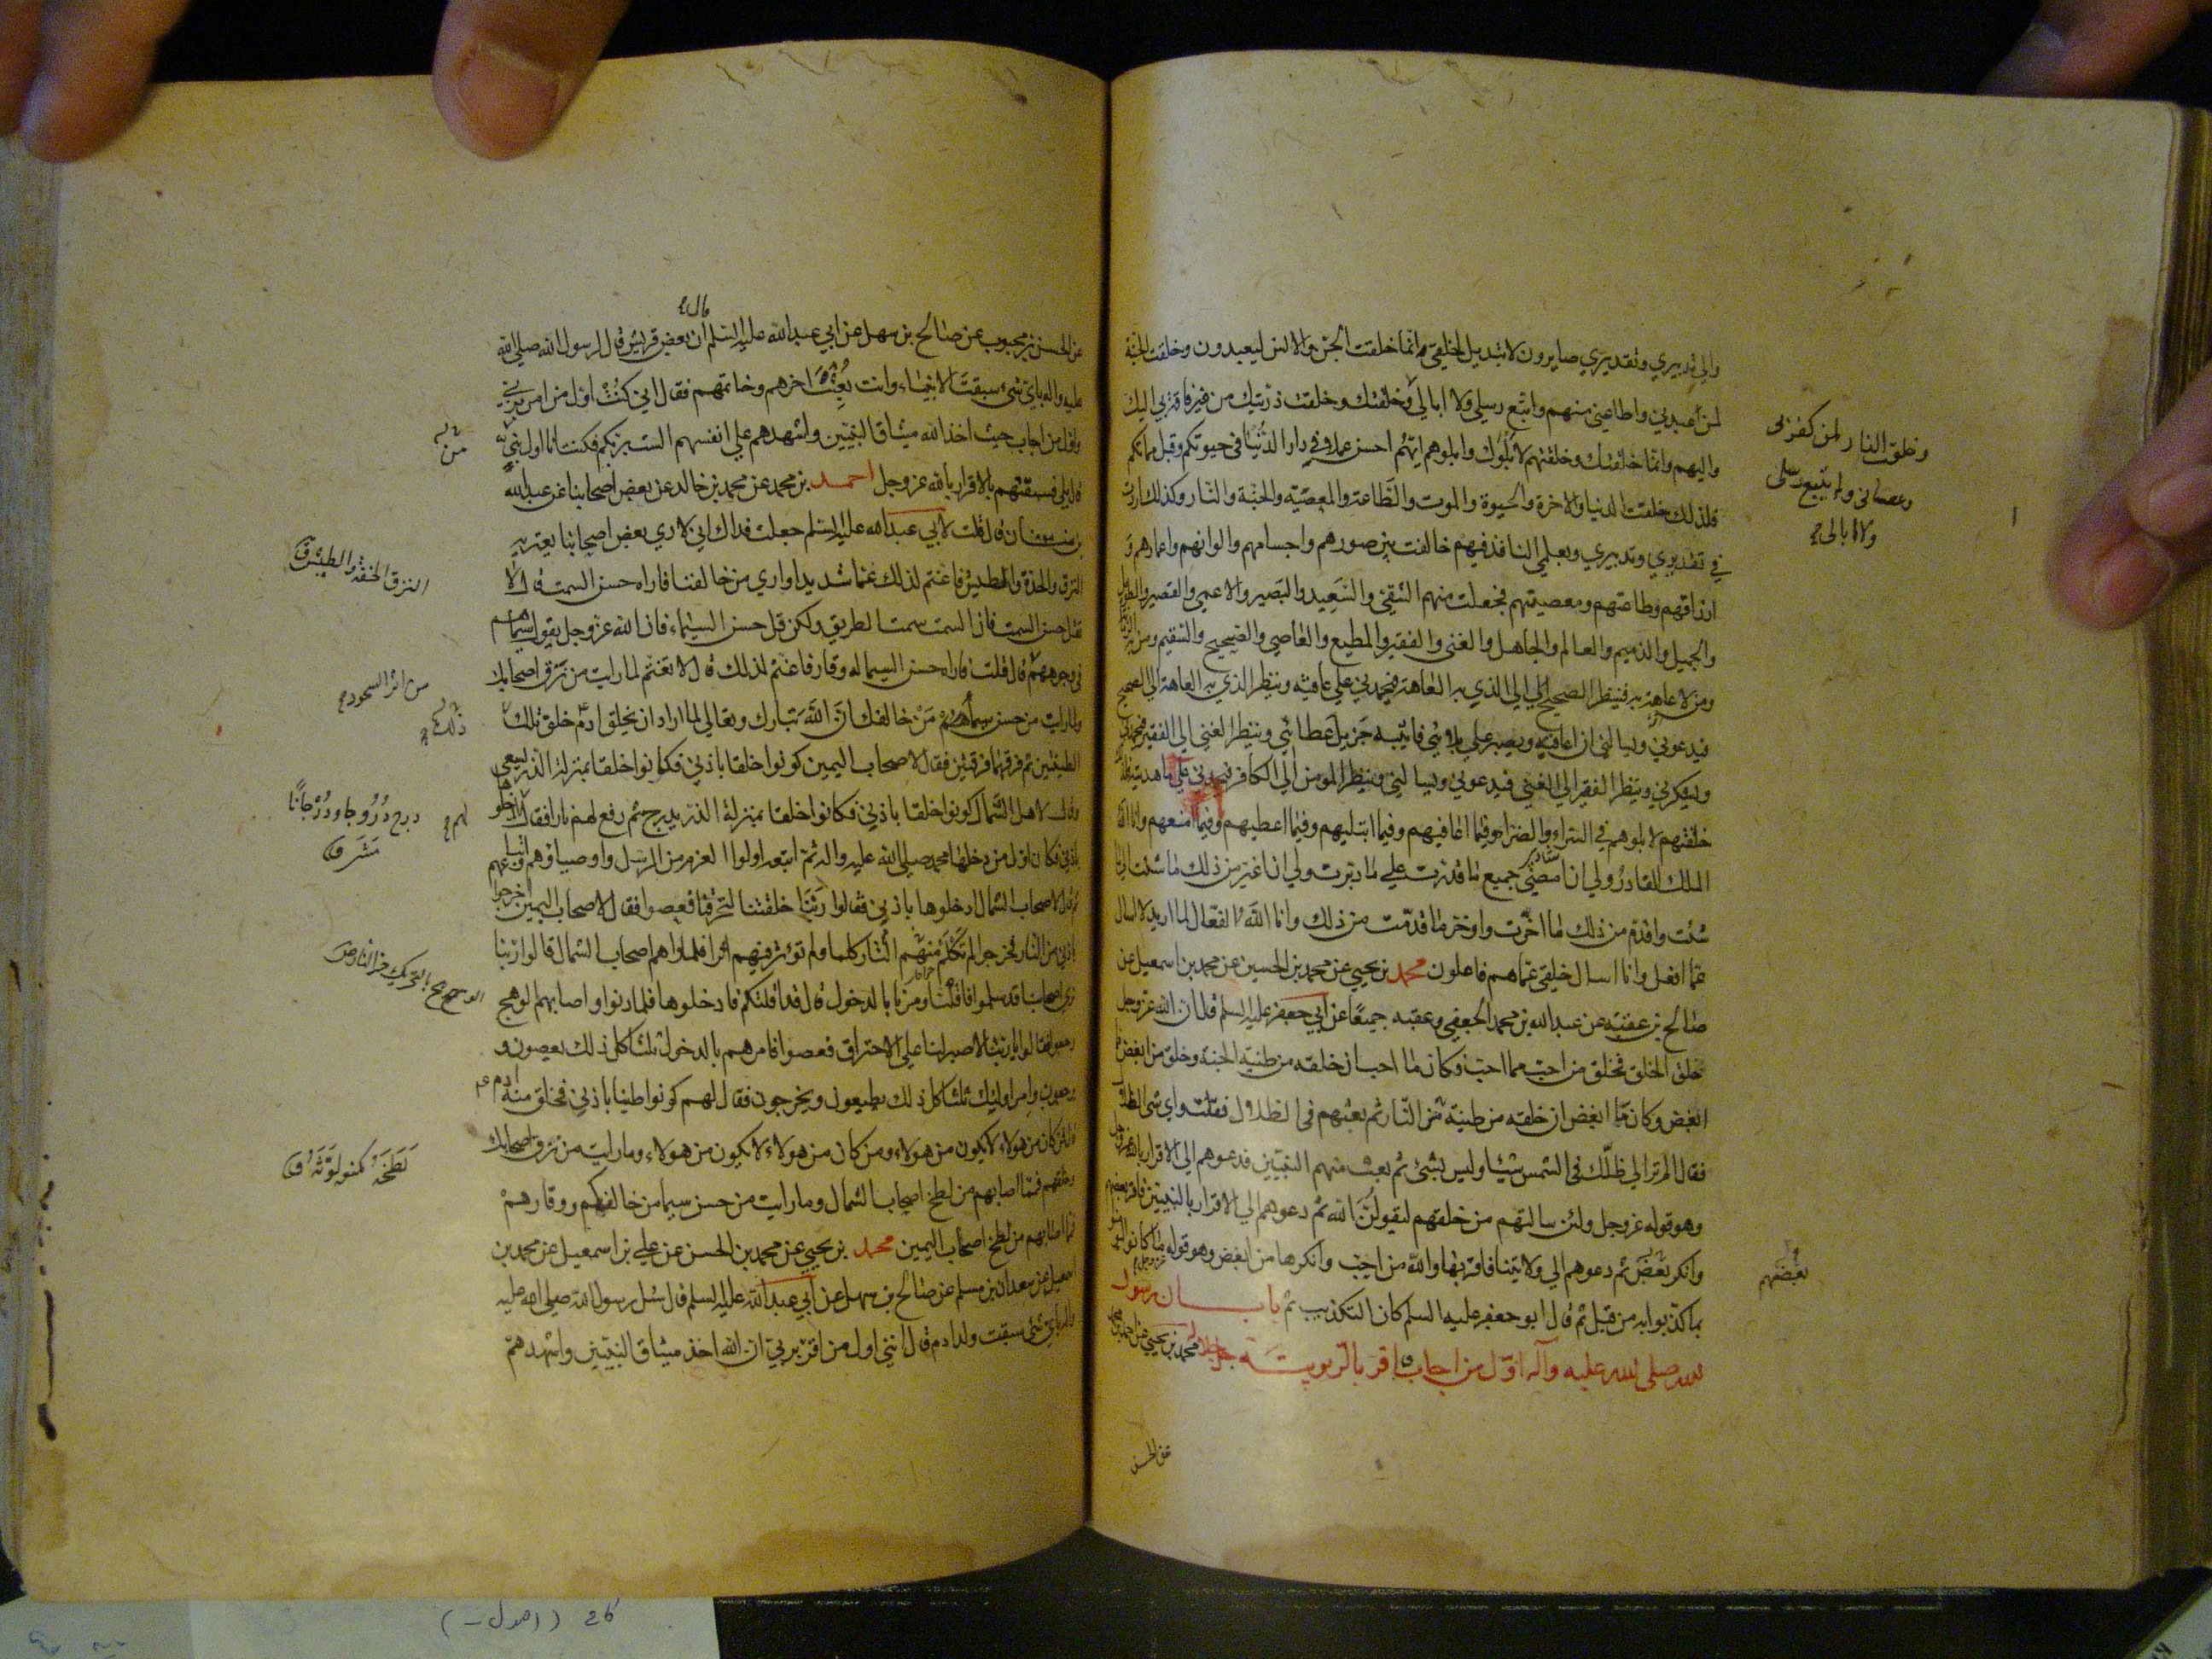 والى تدبيري وتقديري صايرون لا تبديل لخلقي وانما خلقت الجن والانس ليعبدون وخلقت الجنة
لمن اعبدني واطاعني منهم واتبع رسلي ولا ابالي وخلقتك وخلقت ذريتك من غير فاقة بي اليك
واليهم وانما خلقتك وخلقتهم لابلوك وابلوهم ايهم احسن عملا في دار الدنيا في حيوتكم وقبل مماتكم
فلذلك خلقت الدنيا والاخرة والحيوة والموت والطاعة والمعصية والجنة والنار وكذلك اردت
في تقديري وتدبيري وبعلمي النافذ فيهم خالفت بين صورهم واجسامهم والوانهم واعمارهم و
ارزاقهم وطاعتهم ومعصيتهم فجعلت منهم الشقي والسعيد والبصير والاعمى والقصير والطويل
والجميل والذميم والعالم والجاهل والغني والفقير والمطيع والعاصي والصحيح والسقيم ومن به الزمانة
ومن لا عاهة به فينظر الصحيح الى الذي به العاهة فيحمدني على عافيته وينظر الذي به العاهة الى الصحيح
فيدعوني ويسالني ان اعافيه ويصبر على بلائي فاثيبه جزيل عطائي وينظر الغني الى الفقير فيحمدني
ويشكرني وينظر الفقير الى الغني فيدعوني ويسالني وينظر المومن الى الكافر فيحمدني على ما هديته فلذلك
خلقتهم لابلوهم في السراء والضراء وفيما اعافيهم وفيما ابتليهم وفيما اعطيهم وفيما امنعهم وانا الله
الملك القادر ولي ان امضي جميع ما قدرت على ما دبرت ولي ان اغير من ذلك ما شئت الى ما
شئت واقدم من ذلك ما اخرت واوخر ما قدمت من ذلك وانا الله الفعال لما اريد لا اسال
عما افعل وانا اسال خلقي عما هم فاعلون محمد بن يحيى عن محمد بن الحسين عن محمد بن اسمعيل عن
صالح بن عقبة عن عبد الله بن محمد الجعفي وعقبه جميعا عن ابي جعفر عليه السلم قال ان الله عز وجل
خلق الخلق فخلق من احب مما احب وكان ما احب ان خلقه من طينة الجنة وخلق من ابغض مما
ابغض وكان ما ابغض ان خلقه من طينة من النار ثم بعثهم في الظلال فقلت واي شئ الظلال
فقال الم تر الى ظلك في الشمس شيئا وليس بشئ ثم بعث منهم النبيين فدعوهم الى الاقرار بالله عز وجل
وهو قوله عز وجل ولئن سالتهم من خلقهم ليقولن الله ثم دعوهم الى الاقرار بالنبيين فاقر بعضهم
وانكر بعض ثم دعوهم الى ولايتنا فاقر بها والله من احب وانكرها من ابغض وهو قوله ما كانوا ليومنوا
بما كذبوا به من قبل ثم قال ابو جعفر عليه السلم كان التكذيب ثم باب ان رسول
الله صلى الله عليه وآله اول من اجاب واقر بالربوبية محمد بن يحيى عن احمد بن محمد
عن الحسن
وخلقت النار لمن كفر بي
وعصاني ولم يتبع رسلي
ولا ابالي
بعضهم
قال
عن الحسن بن محبوب عن صالح بن سهل عن ابي عبد الله عليه السلم ان بعض قريش قال لرسول الله صلى الله
عليه واله باي شئ سبقت الانبياء وانت بعثت اخرهم وخاتمهم فقال اني كنت اول من امن بربي
واول من اجاب حيث اخذ الله ميثاق النبيين واشهدهم على انفسهم الست بربكم فكنت انا اول نبي
قال بلى فسبقتهم بالاقرار بالله عز وجل احمد بن محمد عن محمد بن خالد عن بعض اصحابنا عن عبد الله
بن سنان قال قلت لابي عبد الله عليه السلم جعلت فداك اني لارى بعض اصحابنا يعتريه
النزق والحدة والطيش فاغتم لذلك غما شديدا وارى من خالفنا فاراه حسن السمت قال لا
تقل حسن السمت فان السمت سمت الطريق ولكن قل حسن السيماء فان الله عز وجل يقول سيماهم
في وجوههم قال قلت فاراه حسن السيما له وقار فاغتم لذلك قال لا تغتم لما رايت من نزق اصحابك
ولما رايت من حسن سيماهم من خالفك ان الله تبارك وتعالى لما اراد ان يخلق ادم خلق تلك
الطينتين ثم فرقهما فرقتين فقال لاصحاب اليمين كونوا خلقا باذني فكانوا خلقا بمنزلة الذر يسعى
وقال لاهل الشمال كونوا خلقا باذني فكانوا خلقا بمنزلة الذر يدرج ثم رفع لهم نارا فقال ادخلوها
باذني فكان اول من دخلها محمد صلى الله عليه واله ثم اتبعه اولوا العزم من الرسل واوصياوهم واتباعهم
ثم قال لاصحاب الشمال ادخلوها باذني فقالوا ربنا خلقتنا لتحرقنا فعصوا فقال لاصحاب اليمين اخرجوا
باذني من النار فخرجوا لم تكلم منهم النار كلما ولم توثر فيهم اثرا فلما راهم اصحاب الشمال قالوا ربنا
نرى اصحابنا قد سلموا فاقلنا ومرنا بالدخول قال قد اقلتكم فادخلوها فلما دنوا واصابهم الوهج
رجعوا فقالوا يا ربنا لا صبر لنا على الاحتراق فعصوا فامرهم بالدخول ثلثا كل ذلك يعصون و
يرجعون وامر اولئك ثلثا كل ذلك يطيعون ويخرجون فقال لهم كونوا طينا باذني فخلق منه ادم
قال فمن كان من هولاء لا يكون من هولاء ومن كان من هولاء لا يكون من هولاء وما رايت من نزق اصحابك
وخلقهم فمما اصابهم من لطخ اصحاب الشمال وما رايت من حسن سيما من خالفكم ووقارهم
فمما اصابهم من لطخ اصحاب اليمين محمد بن يحيى عن محمد بن الحسن عن علي بن اسمعيل عن محمد بن
اسمعيل عن سعدان بن مسلم عن صالح بن سهل عن ابي عبد الله عليه السلم قال سئل رسول الله صلى الله عليه
واله باي شئ سبقت ولد ادم قال انني اول من اقر بربي ان الله اخذ ميثاق النبيين واشهدهم
من
النزق الخفة والطيش ق
من اثر السجود
ذلك
لهم
درج دروجا ودرجانا
مشى ق
الوهج بالتحريك حر النار ص
لطخه كمنعه لوثه ق
كافى (اصول -)